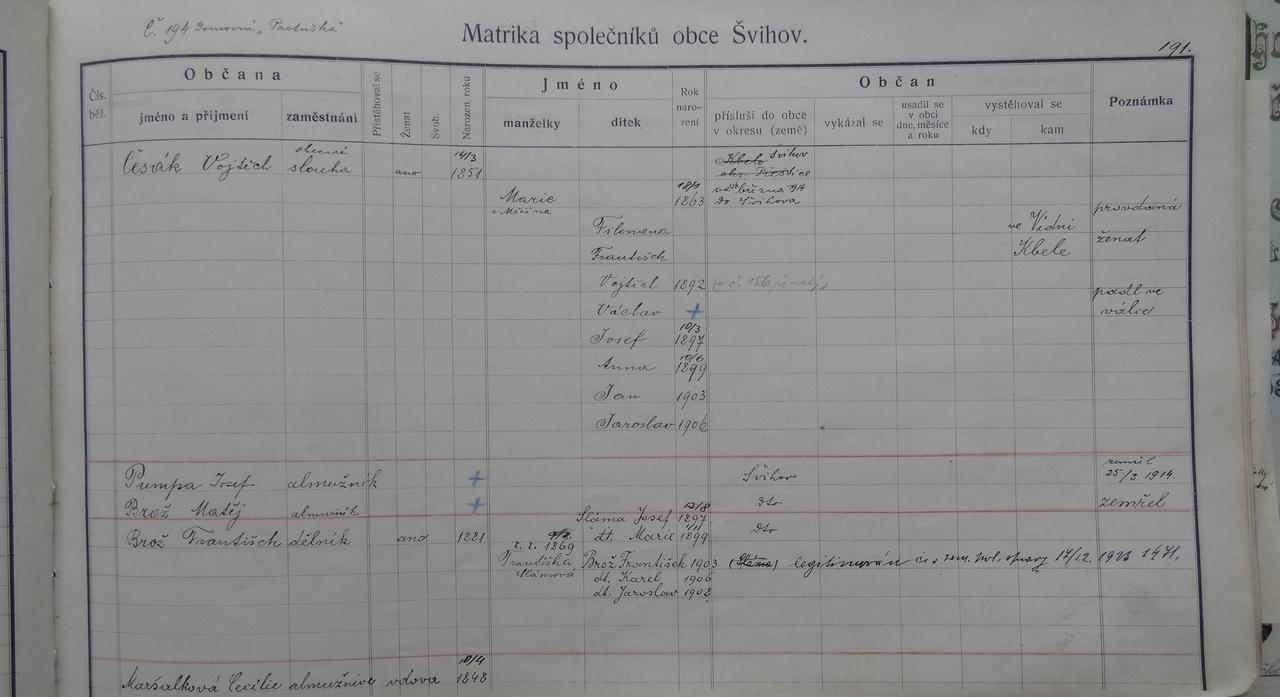 Č. 194 domovní „Pastuška"
Matrika společníků obce Švihov.
191.
Čís. běž.
Občana
jméno a přijmení
zaměstnání
Přistěhoval se
Ženat
Svob.
Narozen roku
Jméno
manželky
dítek
Rok naro- zení
Občan
přísluší do obce v okresu (země)
vykázal se
usadil se v obci dne, měsíce a roku
vystěhoval se
kdy
kam
Poznámka
Česák Vojtěch obecní sluha ano 14/3 1851 Kbelo Švihov
okr. Přestice
Marie 18/1 1863 března 914
z Měčína do Švihova
Filomena ve Vídni provdaná
František Kbele ženat
Vojtěch 1892 (v č. 156
Václav + padl ve válce
Josef 10/3 1897
Anna 10/6 1899
Jan 1903
Jaroslav 1906
Pumpa Josef almužník + Švihov zemřel 25/3 1914.
Brož Matěj almužník + dto zemřel
Sláma Josef 12/8 1897
Brož František dělník ano 1821 r. 1869 dt. Marie 1899 dto
Františka Slámová Brož František 1903 (Sláma) legitimován 17/12. 1923 1471.
dt. Karel 1906
dt. Jaroslav 1908
Maršalková Cecilie almužnice vdova 10/4 1848